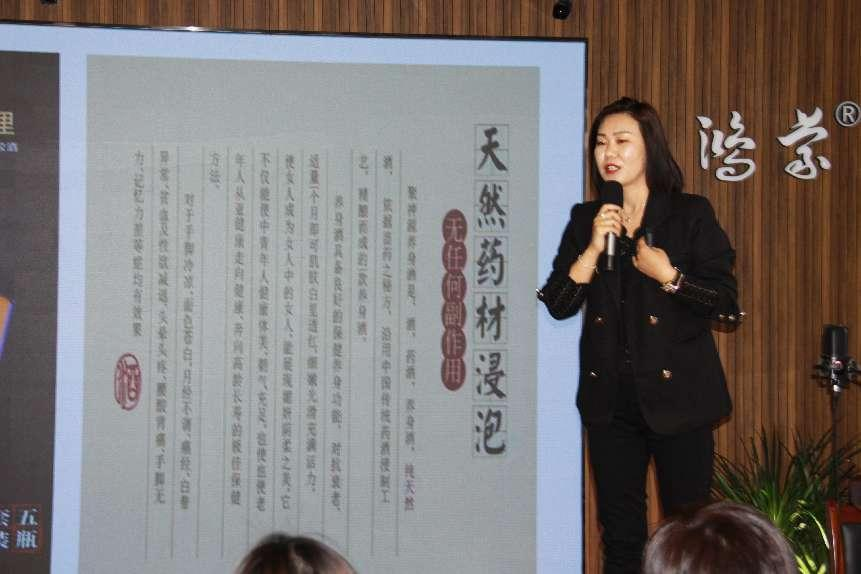 天然药材浸泡
无任何副作用
聚神源养身酒是、酒、药酒、养身酒，纯天然
酒，依据苗药之秘方，沿用中国传统药酒浸制工
精酿而成的一款养身酒。
养身酒具备良好的保健养身功能，对抗衰老，
适量一个月即可肌肤白里透红，细嫩光滑充满活力，
使女人成为女人中的女人，能展现娇阴柔之美，它
不仅能使中青年人健康体美、朝气充足，也使也使老
年人从亚健康走向健康，奔向高龄长寿的极佳保健
方法。
对于手脚冷凉，面色苍白，月经不调，痛经，白带
异常，贫血及性欲减退，头晕头疼，腰酸背痛，手脚无
力，记忆力差等症均有效果
酒
里
酒
五瓶
套装
鸿蒙®